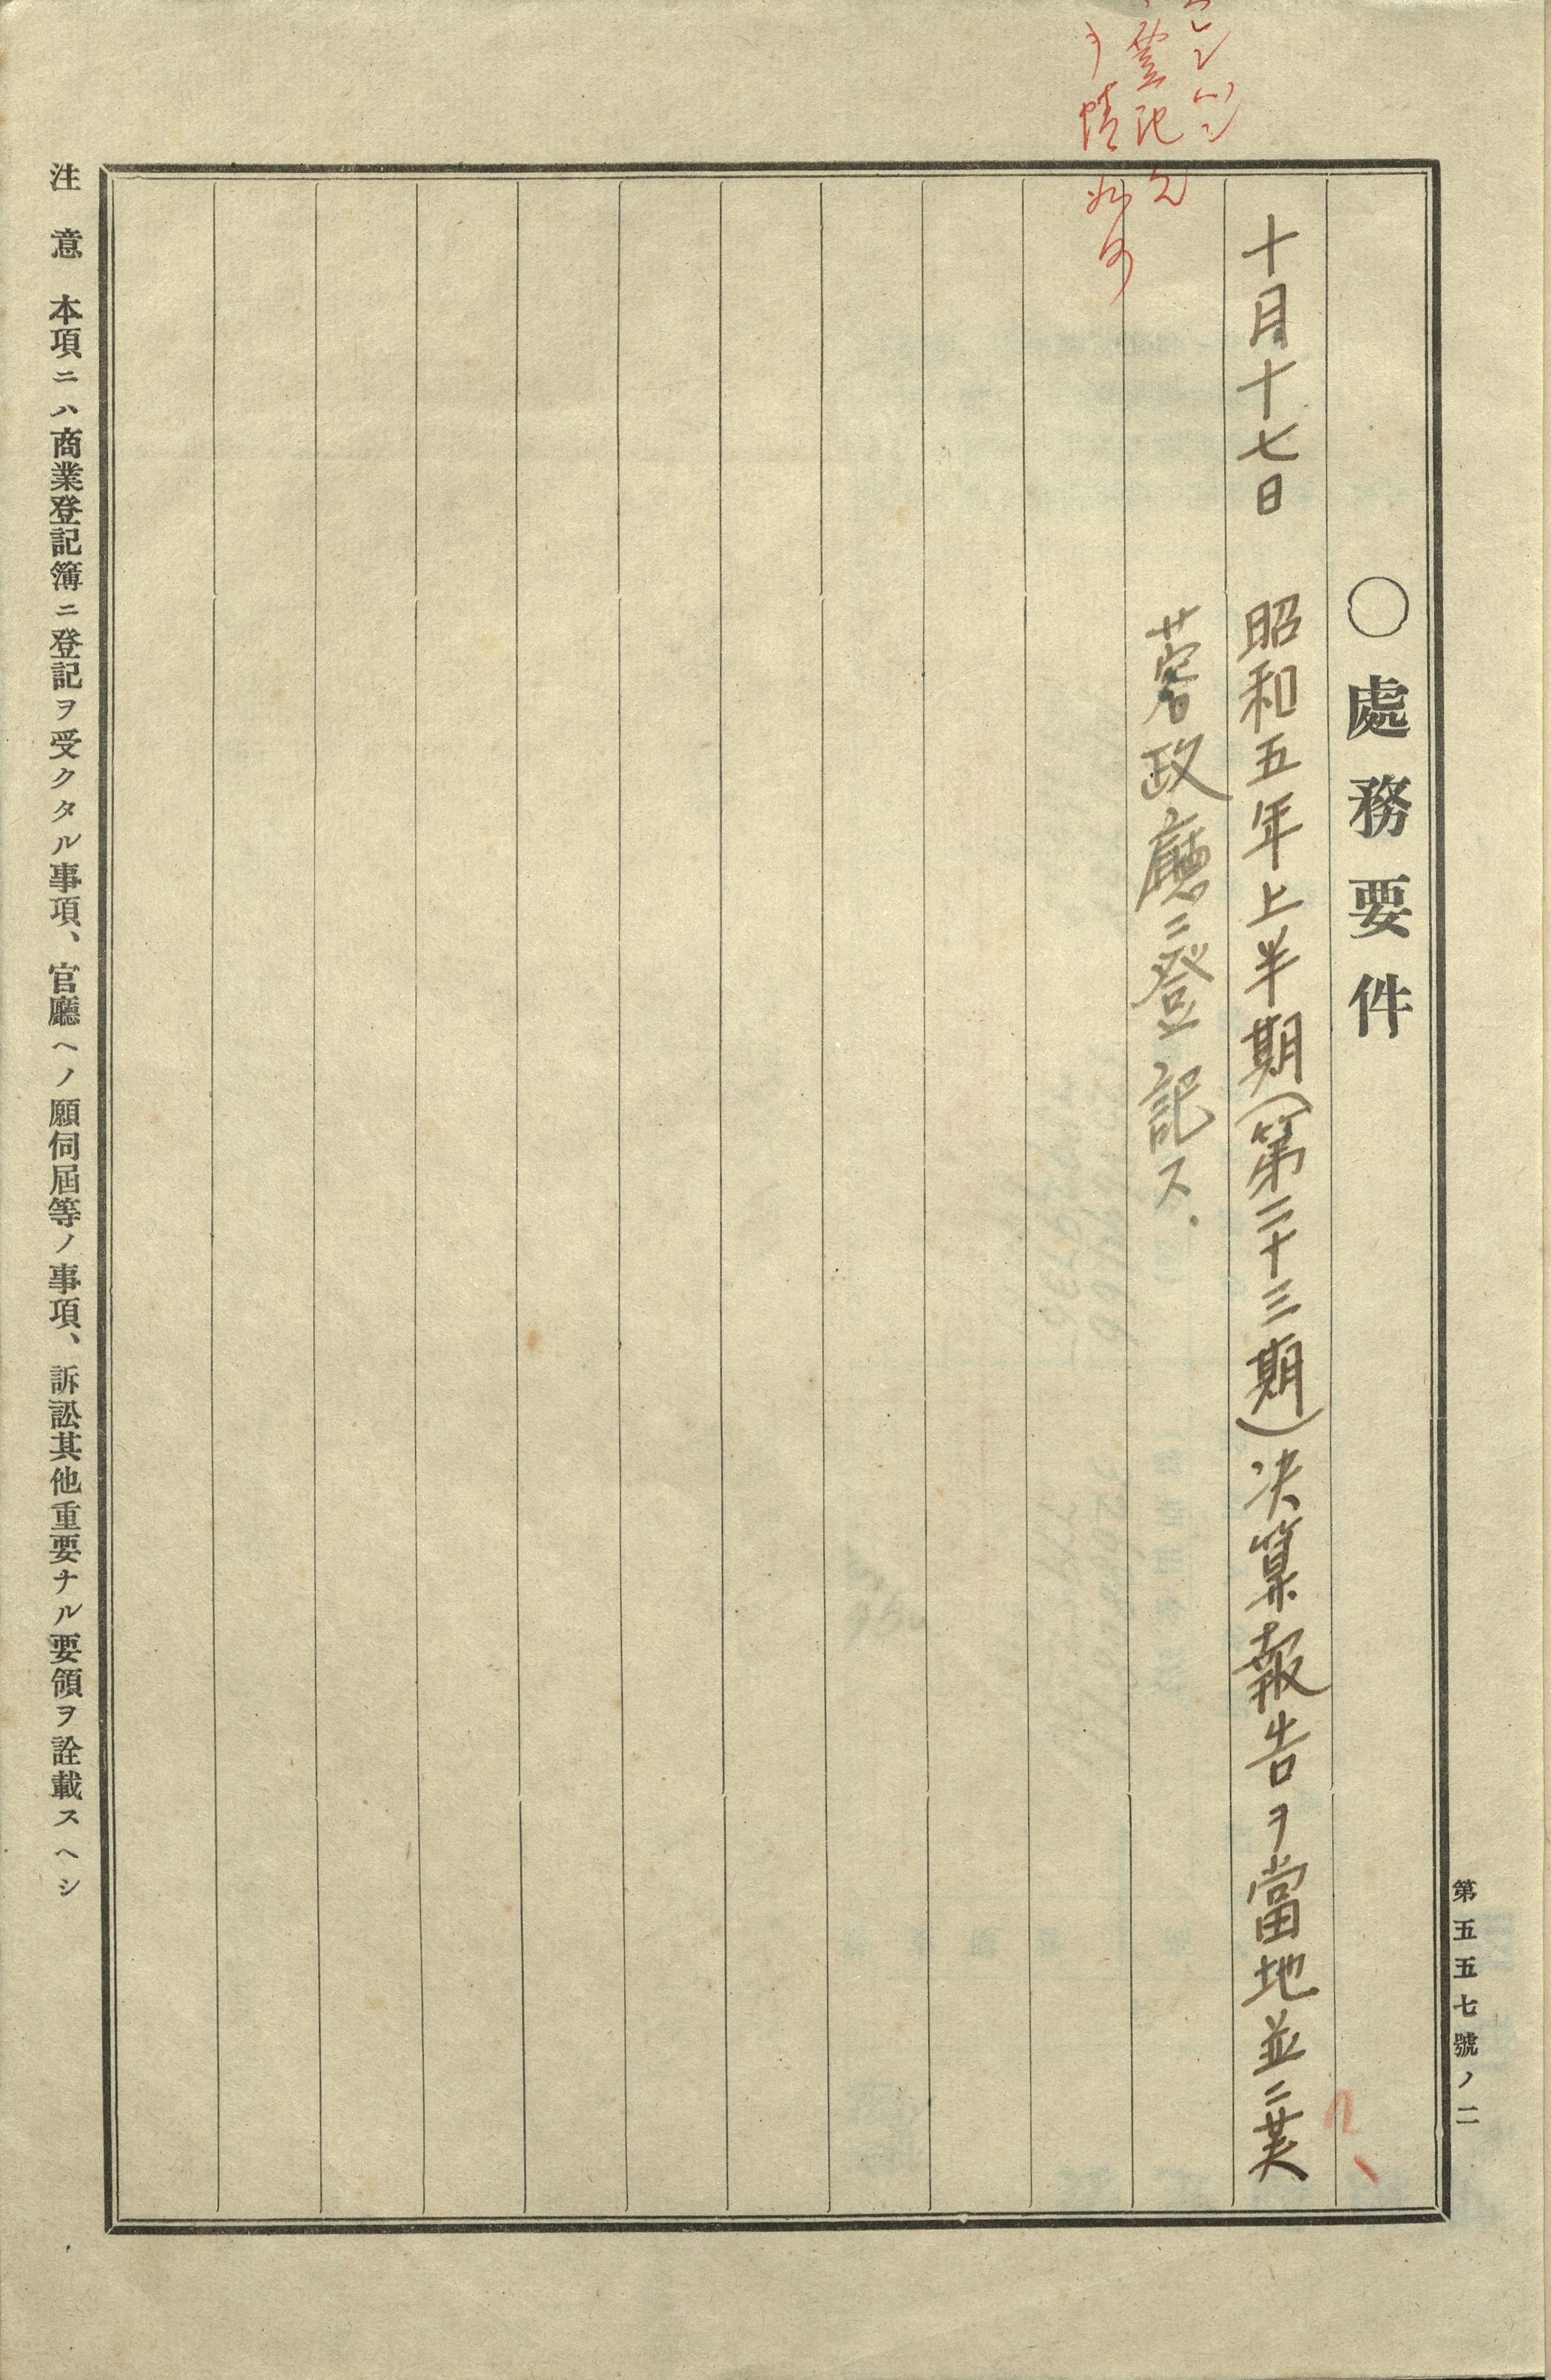 第五五七號ノ二
〇處務要件
十月十七日 昭和五年上半期(第二十三期)決算報告ヲ當地並ニ芙
蓉政廳ニ登記ス.
登記
ヲ
注意 本項ニハ商業登記簿ニ登記ヲ受クタル事項、官廳ヘノ願伺屆等ノ事項、訴訟其他重要ナル要領ヲ詮載スヘシ